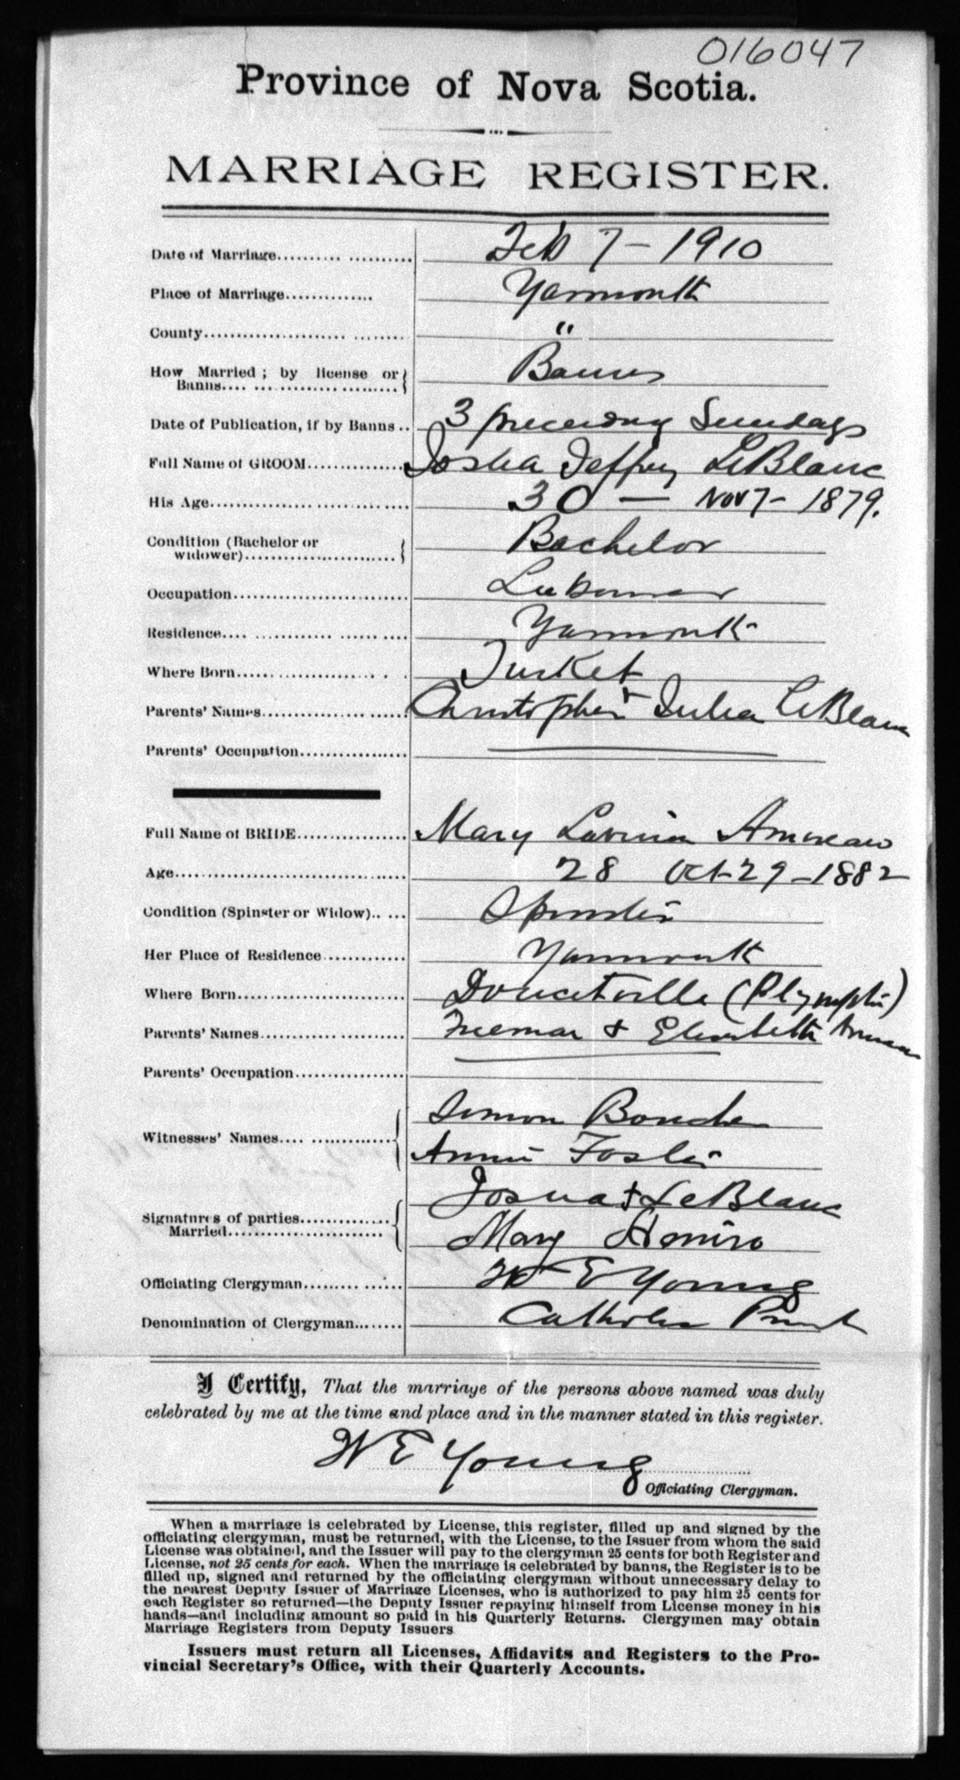 016047
Province of Nova Scotia.
MARRIAGE REGISTER.
Date of Marriage.......... .......... Feb 7 - 1910
Place of Marriage.............. Yarmouth
County...................... ........ "
How Married ; by license or Banns.... ... ..................... Banns
Date of Publication, if by Banns .. 3 preceding Sundays
Full Name of GROOM............... Joshua Jeffrey LeBlanc
His Age....................... ......... .... 30 — Nov 7 - 1879.
Condition (Bachelor or widower)......................... Bachelor
Occupation............................ Labourer
Residence.... .............. ...... .... Yarmouth
Where Born........................ . ... Tusket
Parents' Names................ ...... Christopher + Julia LeBlanc
Parents' Occupation..................
Full Name of BRIDE.................. Mary Lavinia Amireau
Age..................................... 28 Oct 29 - 1882
Condition (Spinster or Widow).. .... Spinster
Her Place of Residence ............. Yarmouth
Where Born............................ Doucetville (Plympton)
Parents' Names......................... Freeman & Elizabeth
Parents' Occupation..................
Witnesses' Names.... ............... Simon Boucher
Annie Foster
Signatures of parties Married............... Josua + LeBlanc
Mary
Officiating Clergyman......... ...... W E Young
Denomination of Clergyman....... Catholic Priest
I Certify, That the marriage of the persons above named was duly
celebrated by me at the time and place and in the manner stated in this register.
W E Young
Officiating Clergyman.
When a marriage is celebrated by License, this register, filled up and signed by the
officiating clergyman, must be returned, with the License, to the Issuer from whom the said
License was obtained, and the Issuer will pay to the clergyman 25 cents for both Register and
License, not 25 cents for each. When the marriage is celebrated by banns, the Register is to be
filled up, signed and returned by the officiating clergyman without unnecessary delay to
the nearest Deputy Issuer of Marriage Licenses, who is authorized to pay him 25 cents for
each Register so returned—the Deputy Issuer repaying himself from License money in his
hands—and including amount so paid in his Quarterly Returns. Clergymen may obtain
Marriage Registers from Deputy Issuers
Issuers must return all Licenses, Affidavits and Registers to the Pro-
vincial Secretary's Office, with their Quarterly Accounts.